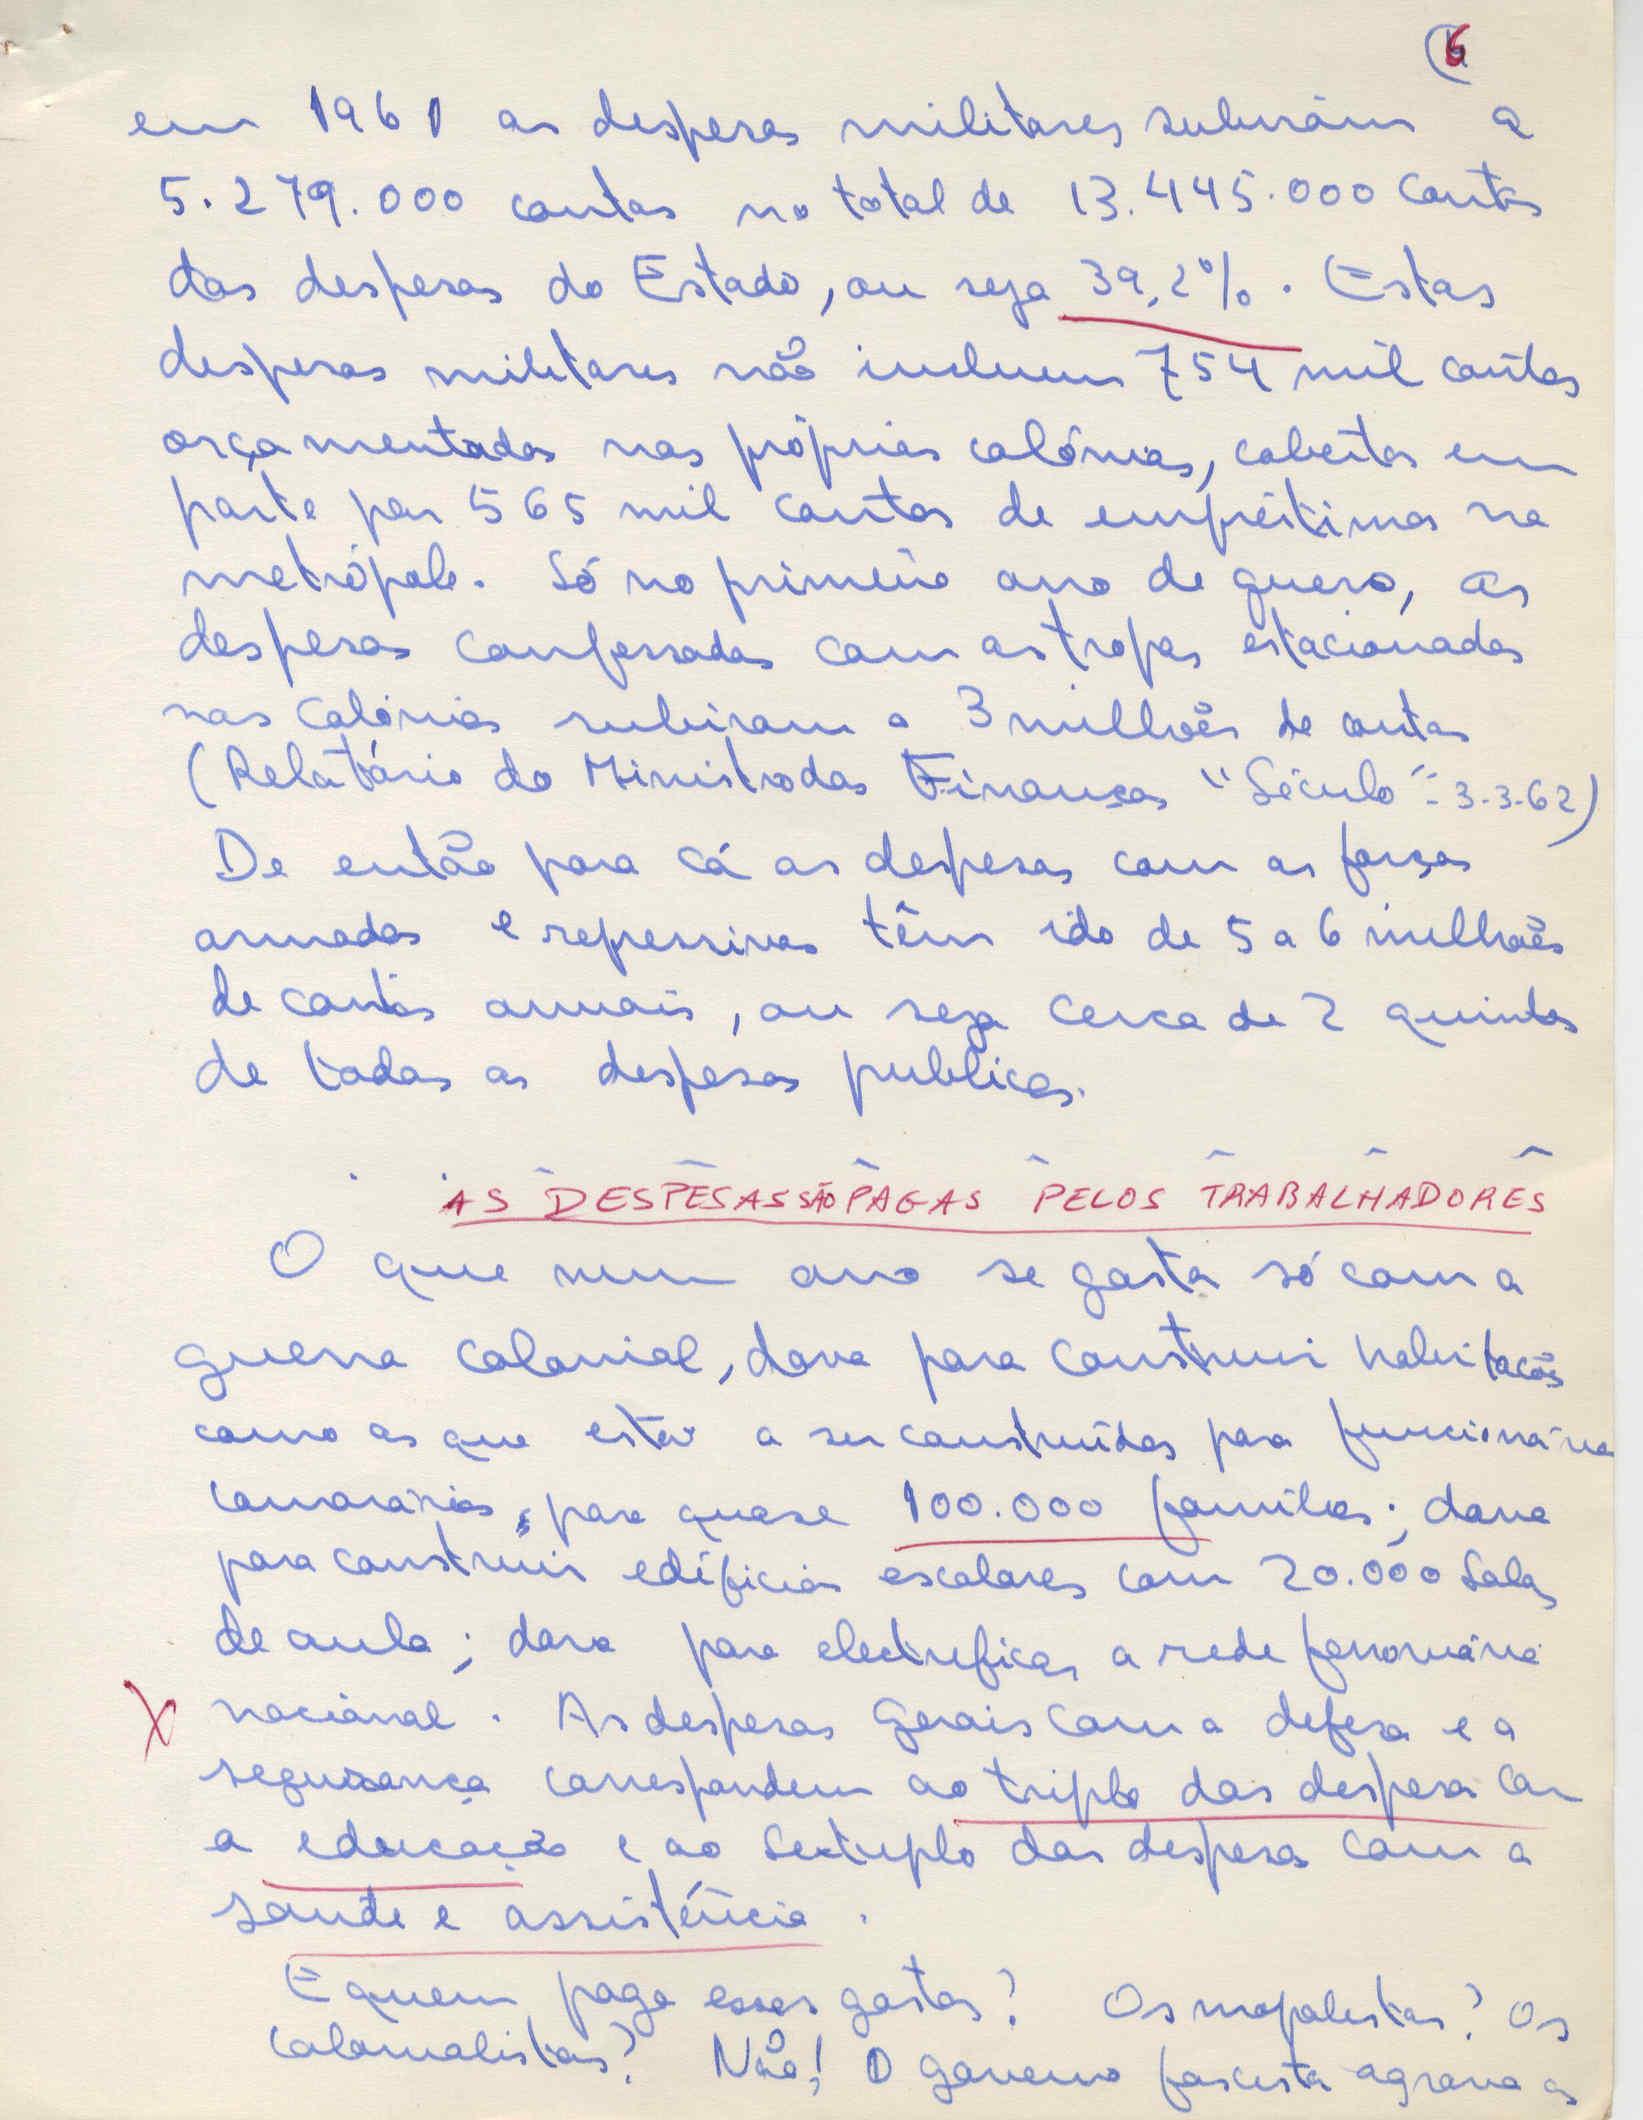 6
em 1961 as despesas militares subiram a
5.279.000 contos no total de 13.445.000 contos
das despesas do Estado, ou seja 39,2%. Estas
despesas militares não incluem 754 mil contos
orçamentados nas próprias colónias, cobertos em
parte por 565 mil contos de empréstimos na
metrópole. Só no primeiro ano de guerra, as
despesas confessadas com as tropas estacionadas
nas colónias subiram a 3 milhões de contos
(Relatório do Ministro das Finanças "Século" - 3-3-62)
De então para cá as despesas com as forças
armadas e repressivas têm ido de 5 a 6 milhões
de contos anuais, ou seja cerca de 2 quintos
de todas as despesas publicas.
AS DESPESAS SÃO PAGAS PELOS TRABALHADORES
O que num ano se gasta só com a
guerra colonial, dava para construir habitações
como as que estão a ser construídas para funcionários
camarários, para quase 100.000 famílias; dava
para construir edifícios escolares com 20.000 salas
de aula; dava para electrificar a rede ferroviária
nacional. As despesas gerais com a defesa e a
segurança correspondem ao triplo das despesas com
a educação e ao sextuplo das despesas com a
saude e assistência.
E quem paga esses gastos? Os monopolistas? Os
colonialistas? Não! O governo fascista agrava os